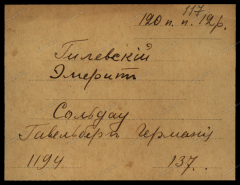 117
120 п. п. 12 р.
Гилевскій
Эмеритъ
Сольдау
Гавельберг Германія
1194 137.